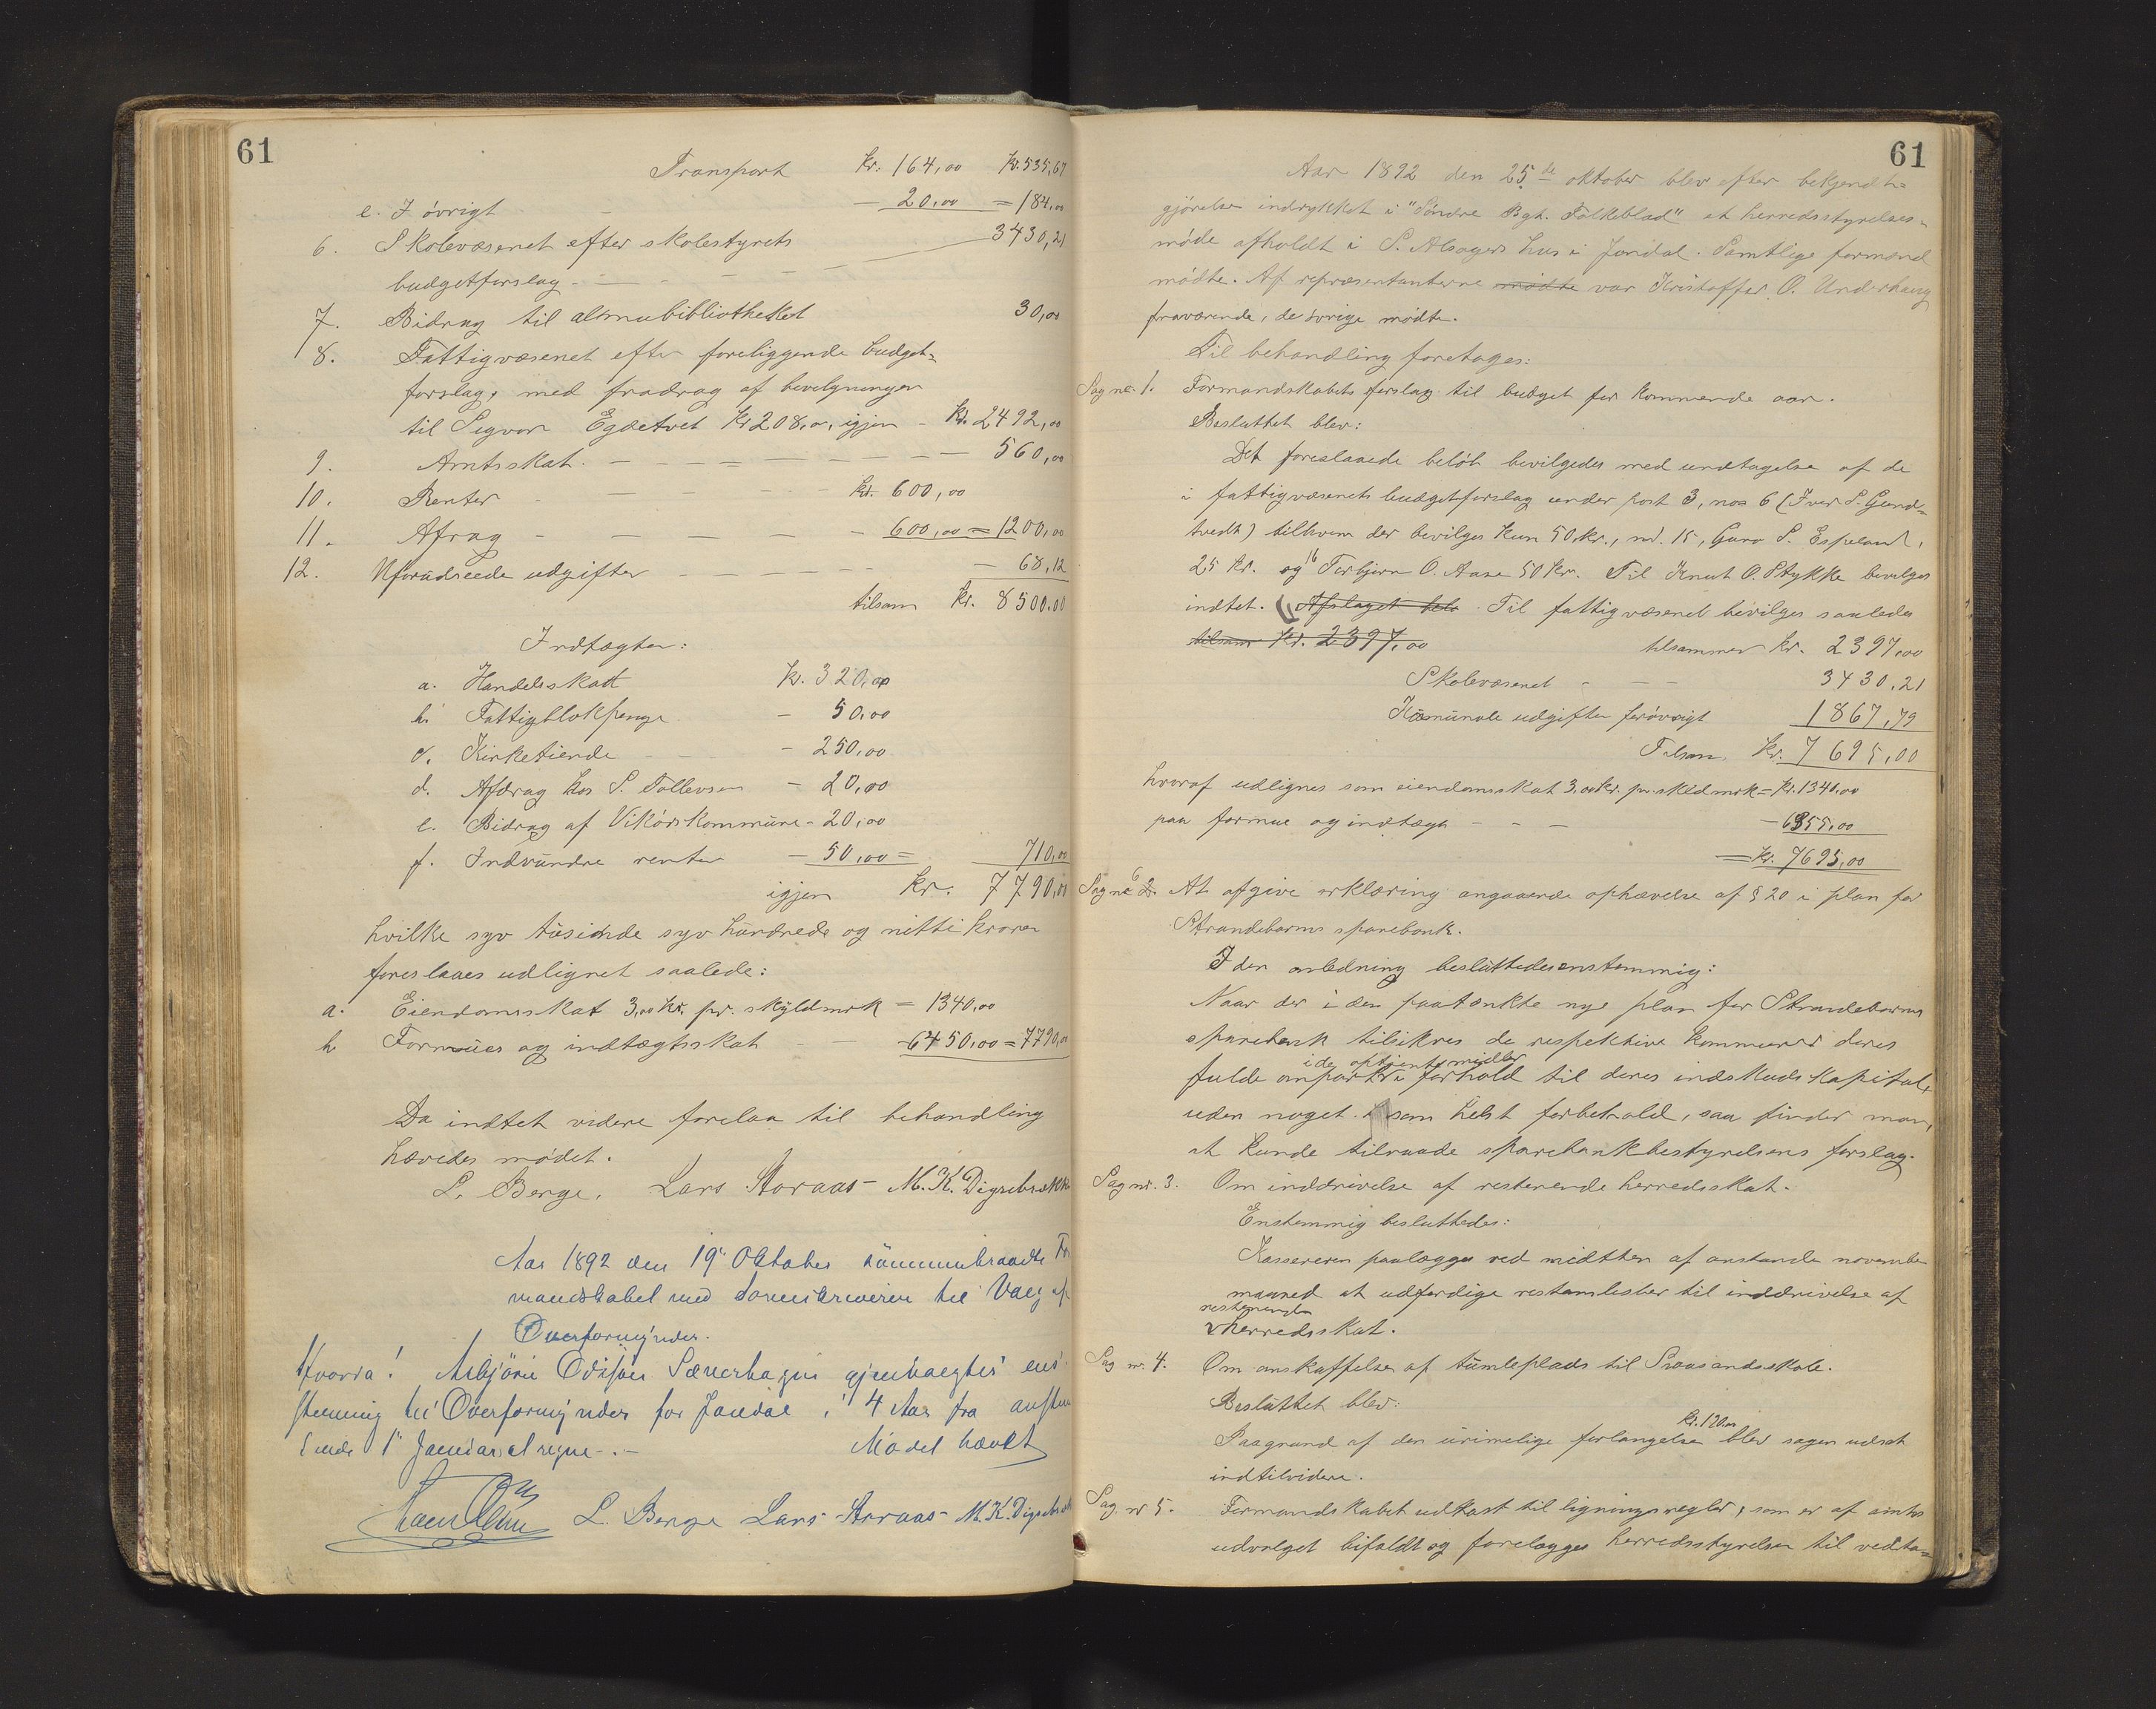 61
Transport Kr. 164,00 Kr. 535,67
e. I övrigt - - 20,00 = 184,00
6. Skolevæsenet efter skolestyrets 3430,21
budgetforslag - - -
7. Bidrag til almuebibliotheket 30,00
8. Fattigvæsenet efter foreliggende budget=
forslag, med fradrag af bevilgningen
til Sigvor Kr 208,00, igjen - Kr. 2492,00
9. Amtsskat. - - - - 560,00
10. Renter - - - - Kr. 600,00
11. Afrag - - - - - 600,00 = 1200,00
12. Uforudseede udgifter - - - - 68,12
tilsam Kr. 8500.00
Indtægter:
a. Handelsskatt Kr. 320,00
b. Fattigblokpenge - 50,00
c. Kirketiende - - 250,00
d. Afdrag hos S. Tollevsen - 20,00
e. Bidrag af Vikörs kommune - 20,00
f. Indvundne renter - 50,00 = 710,00
igjen Kr. 7790,00
hvilke syv tusinde syv hundrede og nitti kroner
foreslaaes udlignet saalede:
a. Eiendomsskat 3,00 Kr. pr. skyldmrk = 1340,00
b Formues og indtægtsskat - - 6450,00 = 7790,00
Da indtet videre forelaa til behandling
hævedes mødet.
L. Berge. Lars Storaas - M. K. Digrebrekke
Aar 1892 den 19' Oktober sammentraadte For
mandskabet med Sorenskriveren til Valg af
Overformynder.
Hvorda! Asbjörn Odison Sæverhagen gjenvalgtes ens
stemmig til Overformynder for Jondal i 4 Aar fra anstun
dende 1' Januar at regne -.- Mødet hævet
L. Berge Lars Storaas - M. K. Digrebrek
61
Aar 1892 den 25de oktober blev efter bekjendt=
gjörelse indrykket i "Söndre Bgh. Folkeblad" et herredsstyrelses=
möde afholdt i S. Alsagers hus i Jondal. Samtlige formænd
mödte. Af repræsentanterne mödte var Kristoffer O. Underhaug
fraværende, de övrige mødte.
Til behandling foretages:
Sag nr. 1. Formandskabets forslag til budget for kommende aar.
Besluttet blev:
Det foreslaaede belöb bevilgedes med undtagelse af de
i fattigvæsenets budgetforslag under post 3, nos 6 (Iver S. Gund=
tvedt) tilhvem der bevilges kun 50 kr., nr. 15, Guro S. Espeland,
25 kr. og 16 Torbjørn O. Aase 50 kr. Til Knut O. Stykke bevilges
indtet. Afslaget belø Til fattigvæsenet bevilges saaledes
tilsam Kr. 2397,00 tilsammen Kr. 2397,00
Skolevæsenet - - - 3430,21
Kommunale udgifter forövrigt 1867,79
Tilsam Kr. 7695,00
hvoraf udlignes som eiendomsskat 3,00 kr. pr. skldmrk = Kr. 1340,00
paa formue og indtægt - - - - 6355,00
= Kr. 7695,00
Sag nr 2. At afgive erklæring angaaende ophævelse af § 20 i plan for
Strandebarms sparebank.
I den anledning besluttedes enstemmig:
Naar der i den paatænkte nye plan for Strandebarms
sparebank tilsikres de respektive kommuner deres
i de optjente midler
fulde anpart i forhold til deres indskuds kapital,
uden noget som helst forbehold, saa finder man,
at kunde tilraade sparebankbestyrelsens forslag.
Sag nr. 3. Om inddrivelse af resterende herredsskat.
Enstemmig besluttedes:
Kassereren paalægges ved midtten af anstunde november
maaned at udferdige restanslister til inddrivelse af
resterende
herredsskat.
Sag nr. 4. Om anskaffelse af tumleplads til Svaasands skole.
Besluttet blev:
kr. 120,00
Paagrund af den urimelige forlangelse blev sagen udsat
indtilvidere.
Sag nr 5. Formandskabet udkast til ligningsregler, som er af amts
udvalget bifaldt og forelægges herredsstyrelsen til vedta=